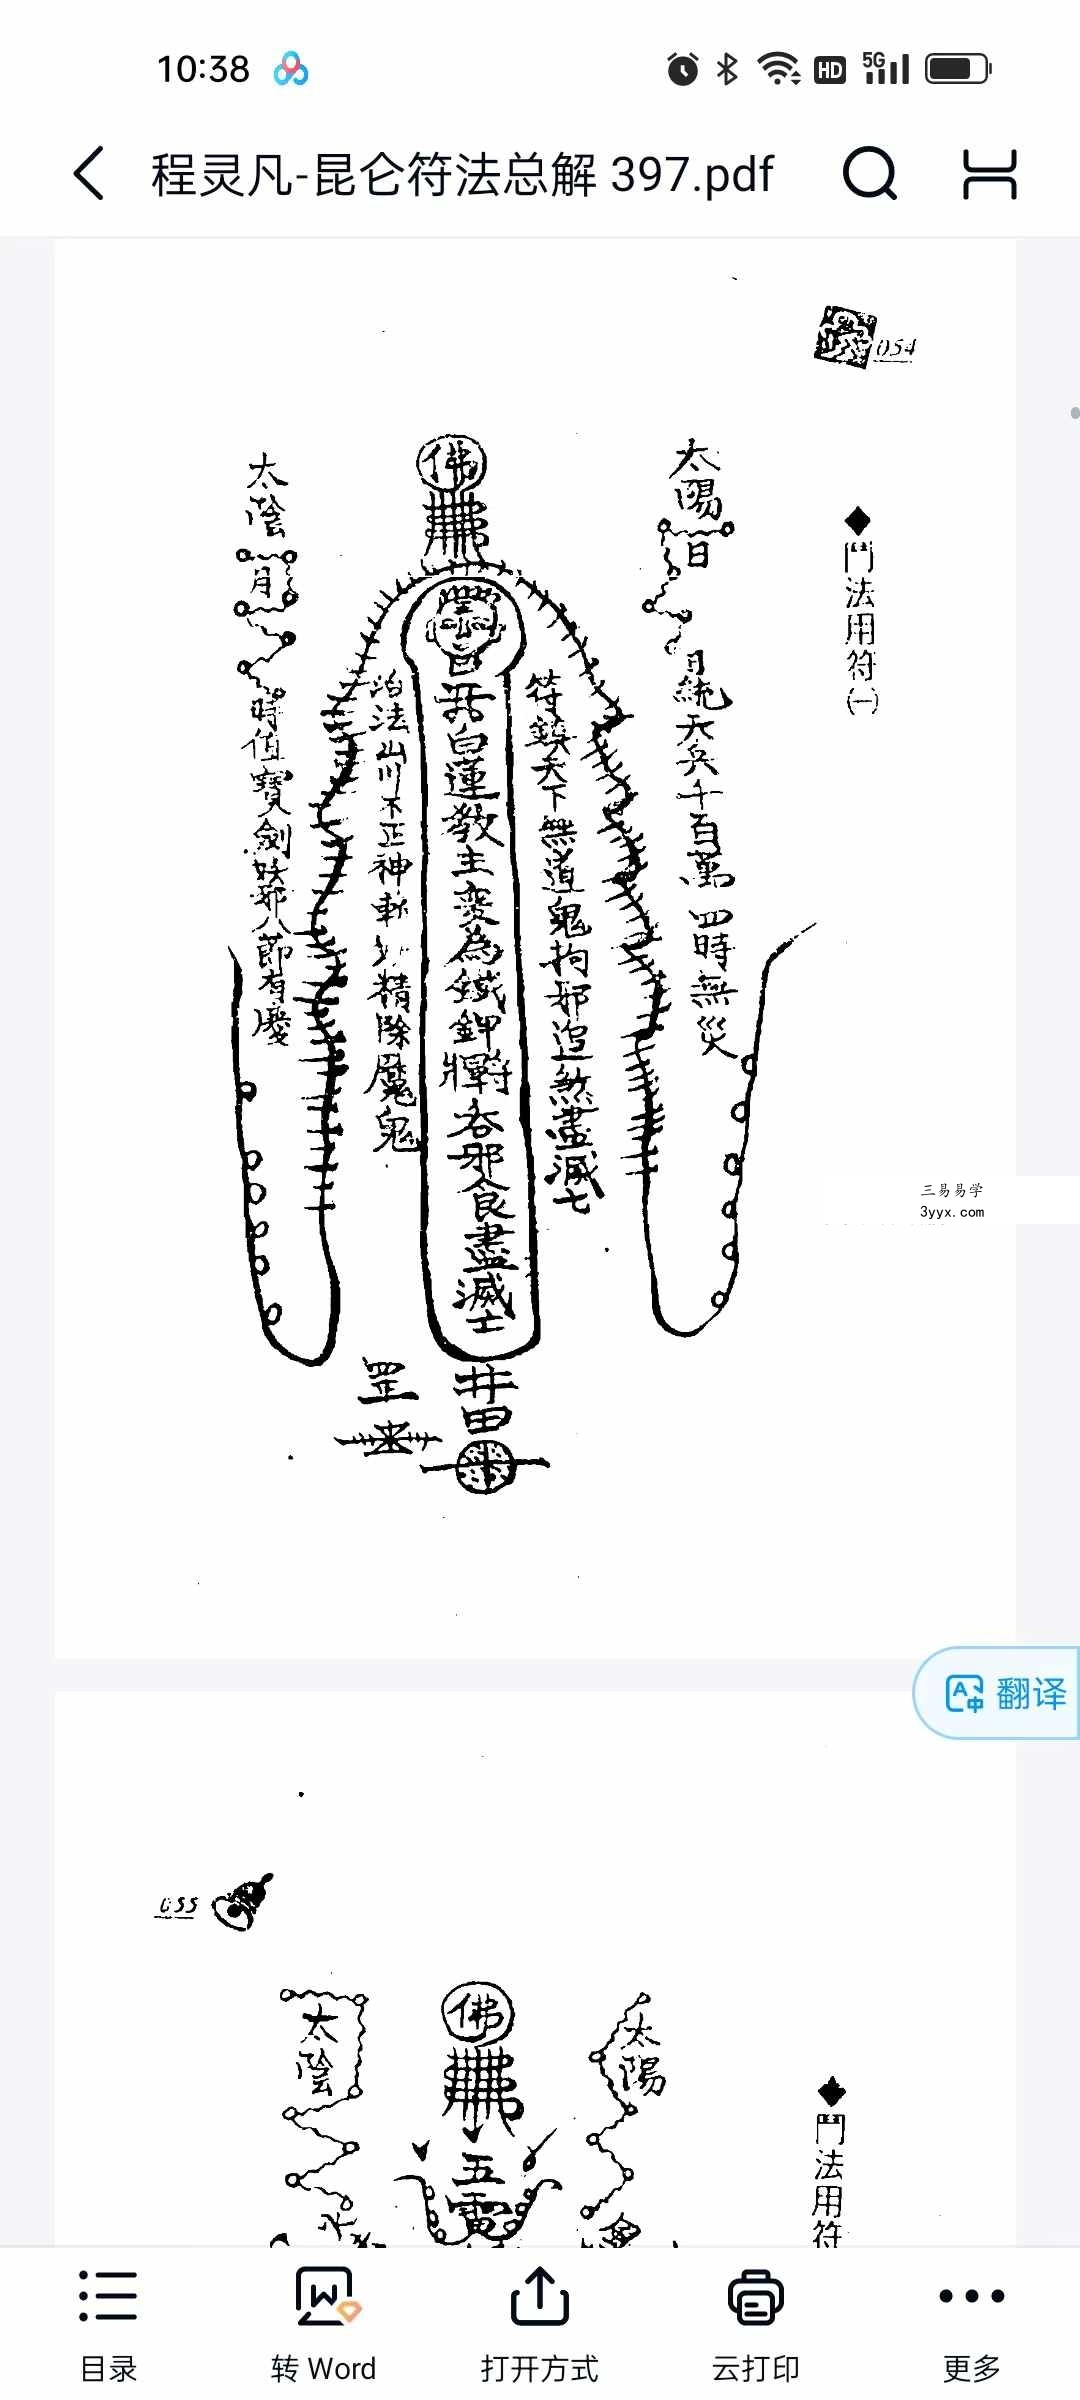 10:38
HD
5G
程灵凡-昆仑符法总解 397.pdf
054
◆鬥法用符(一)
太陽日
日統天兵千百萬四時無災
符鎮天下無道鬼拘邪追煞盡滅亡
佛
白蓮教主變為鐵鉀
吞邪食盡滅亡
治法山川不正神斬 精除魔鬼
太陰月
時值寶劍妖邪八節有慶
罡
井田
三易易学
3yyx.com
翻译
055
◆鬥法用符
太陽
佛
五雷
太陰
目录
转 Word
打开方式
云打印
更多